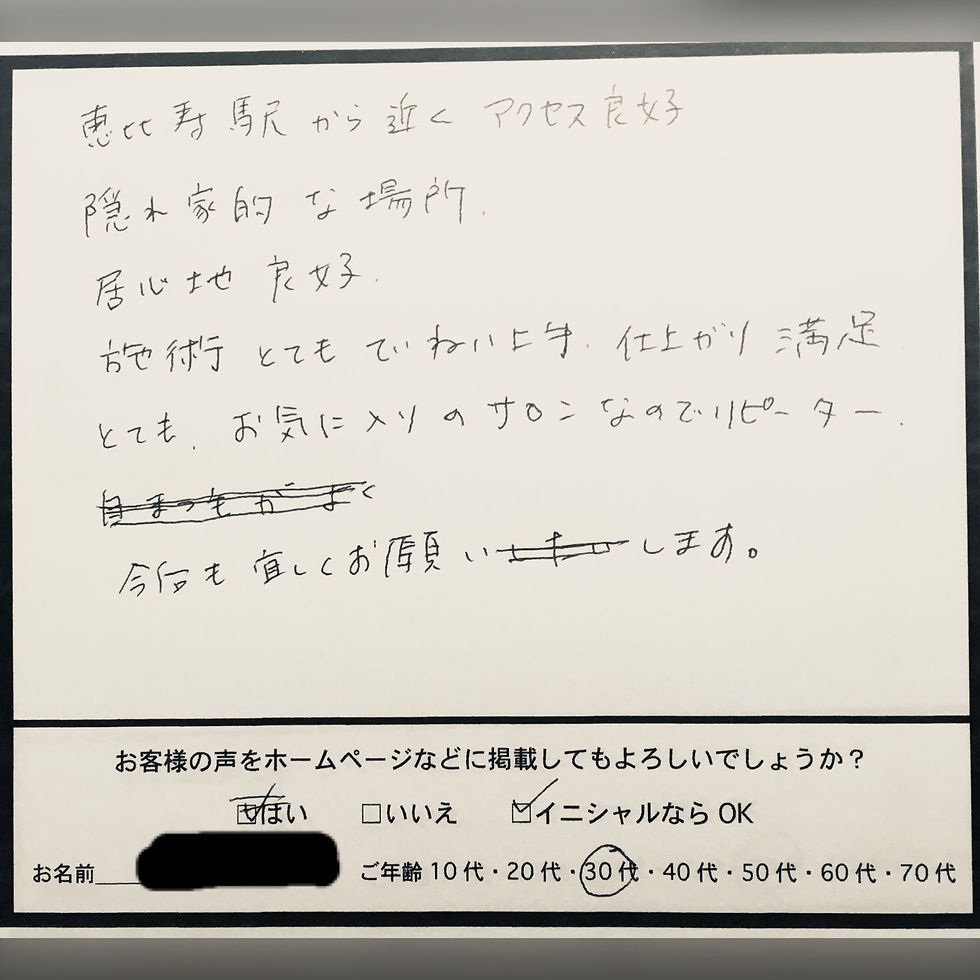 恵比寿駅から近く アクセス良好
隠れ家的な場所.
居心地良好.
施術とてもていねい上手. 仕上がり満足
とても. お気に入りのサロンなのでリピーター.
自まつもがよく
今后も宜しくお願いします。
お客様の声をホームページなどに掲載してもよろしいでしょうか？
□はい □いいえ ☑イニシャルならOK
お名前 ご年齢 10代・20代・30代・40代・50代・60代・70代